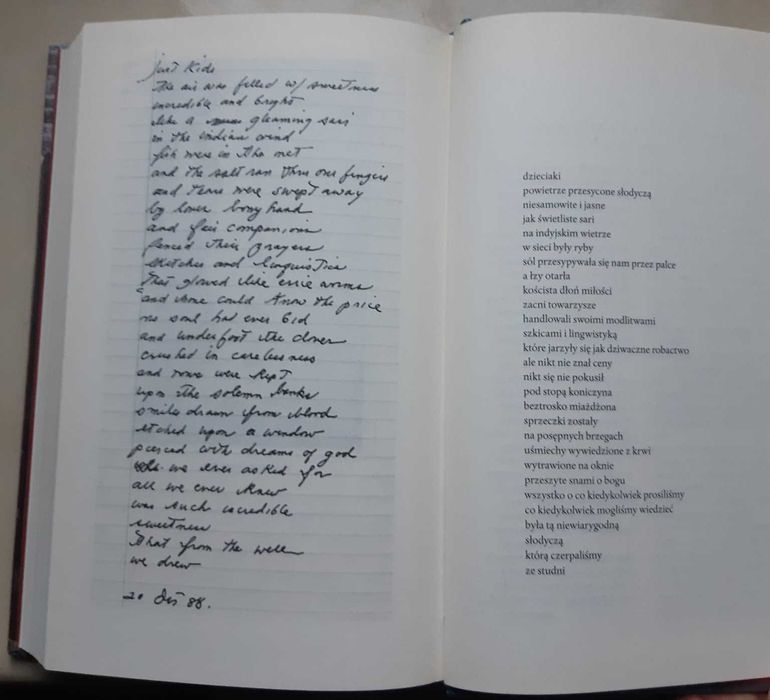 Just Kids
the air was filled w/ sweetness
incredible and bright
like a gleaming sari
in the indian wind
fish were in the net
and the salt ran thru our fingers
and tears were swept away
by loves bony hand
and fair companions
fenced their prayers
sketches and linguistics
that glowed like eerie worms
and none could know the price
no soul had ever bid
and underfoot the clover
crushed in carelessness
and rows were kept
upon the solemn banks
smiles drawn from blood
etched upon a window
pierced with dreams of god
we ever asked for
all we ever knew
was such incredible
sweetness
that from the well
we drew
20 88.
dzieciaki
powietrze przesycone słodyczą
niesamowite i jasne
jak świetliste sari
na indyjskim wietrze
w sieci były ryby
sól przesypywała się nam przez palce
a łzy otarła
koścista dłoń miłości
zacni towarzysze
handlowali swoimi modlitwami
szkicami i lingwistyką
które jarzyły się jak dziwaczne robactwo
ale nikt nie znał ceny
nikt się nie pokusił
pod stopą koniczyna
beztrosko miażdżona
sprzeczki zostały
na posępnych brzegach
uśmiechy wywiedzione z krwi
wytrawione na oknie
przeszyte snami o bogu
wszystko o co kiedykolwiek prosiliśmy
co kiedykolwiek mogliśmy wiedzieć
była tą niewiarygodną
słodyczą
którą czerpaliśmy
ze studni